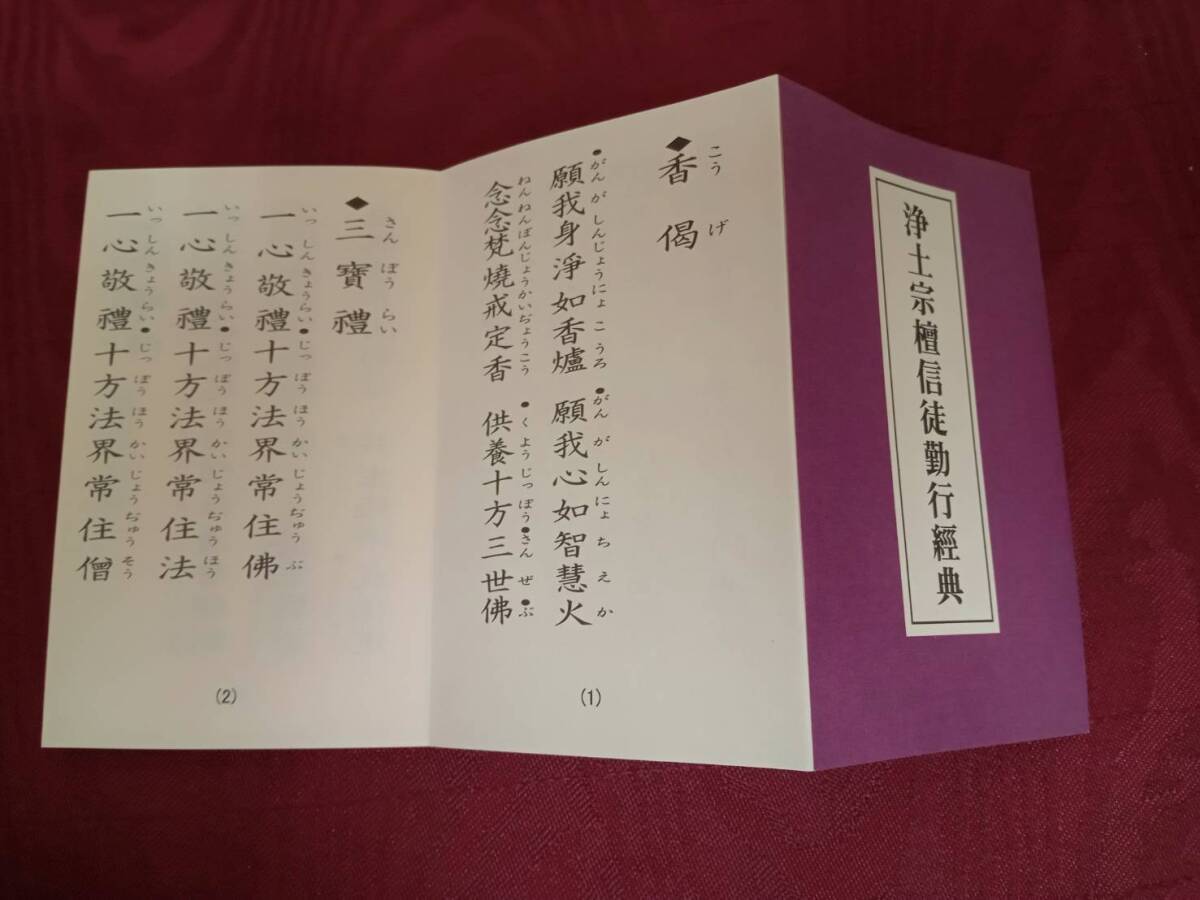 浄土宗檀信徒勤行經典
こうげ
◆香偈
●がんがしんじょうにょこうろ ●がんがしんにょちえか
願我身淨如香爐 願我心如智慧火
ねんねんぼんじょうかいぢょうこう ●くようじっぽう●さんぜ●ぶ
念念梵燒戒定香 供養十方三世佛
(1)
さんぼうらい
◆三寶禮
いっしんきょうらい●じっぽうほうかいじょうぢゅうぶ
一心敬禮十方法界常住佛
いっしんきょうらい●じっぽうほうかいじょうぢゅうほう
一心敬禮十方法界常住法
いっしんきょうらい●じっぽうほうかいじょうぢゅうそう
一心敬禮十方法界常住僧
(2)